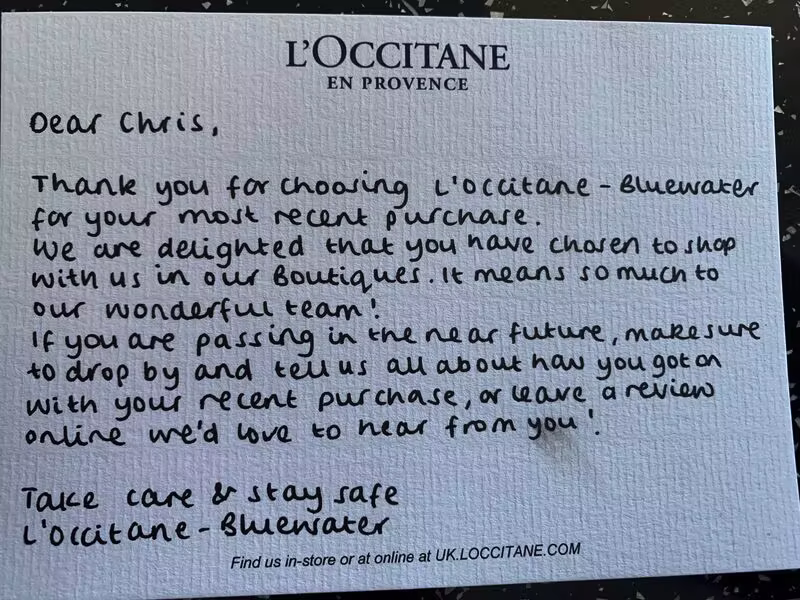 L'OCCITANE
EN PROVENCE
Dear Chris,
Thank you for choosing L'occitane - Bluewater
for your most recent purchase.
We are delighted that you have chosen to shop
with us in our Boutiques. It means so much to
our wonderful team!
If you are passing in the near future, make sure
to drop by and tell us all about how you got on
with your recent purchase, or leave a review
online we'd love to hear from you!
Take care & stay safe
L'occitane - Bluewater
Find us in-store or at online at UK.LOCCITANE.COM